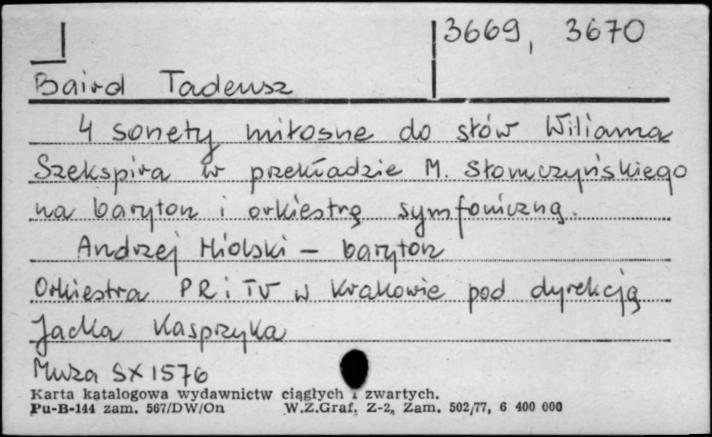 3669, 3670
Baird Tadeusz
4 sonety miłosne do słów Wiliama
Szekspira w przekładzie M. Słomczyńskiego
na baryton i orkiestrę symfoniczną.
Andrzej Hiolski – baryton
Orkiestra PR i TV w Krakowie pod dyrekcją
Jacka Kasprzyka
Muza SX 1576
Karta katalogowa wydawnictw ciągłych i zwartych.
Pu-B-144 zam. 567/DW/On W.Z.Graf. Z-2, Zam. 502/77, 6 400 000